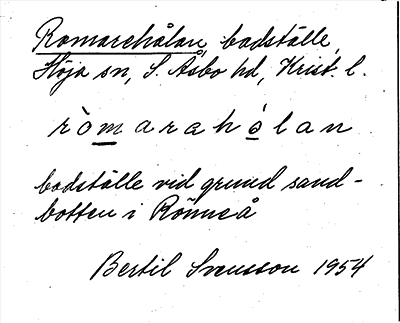 Romarehålan, badställe,
Höja sn, S. Åsbo hd, Krist. l.
ròmarahó̱lan
badställe vid grund sand-
botten i Rönneå
Bertil Svensson 1954